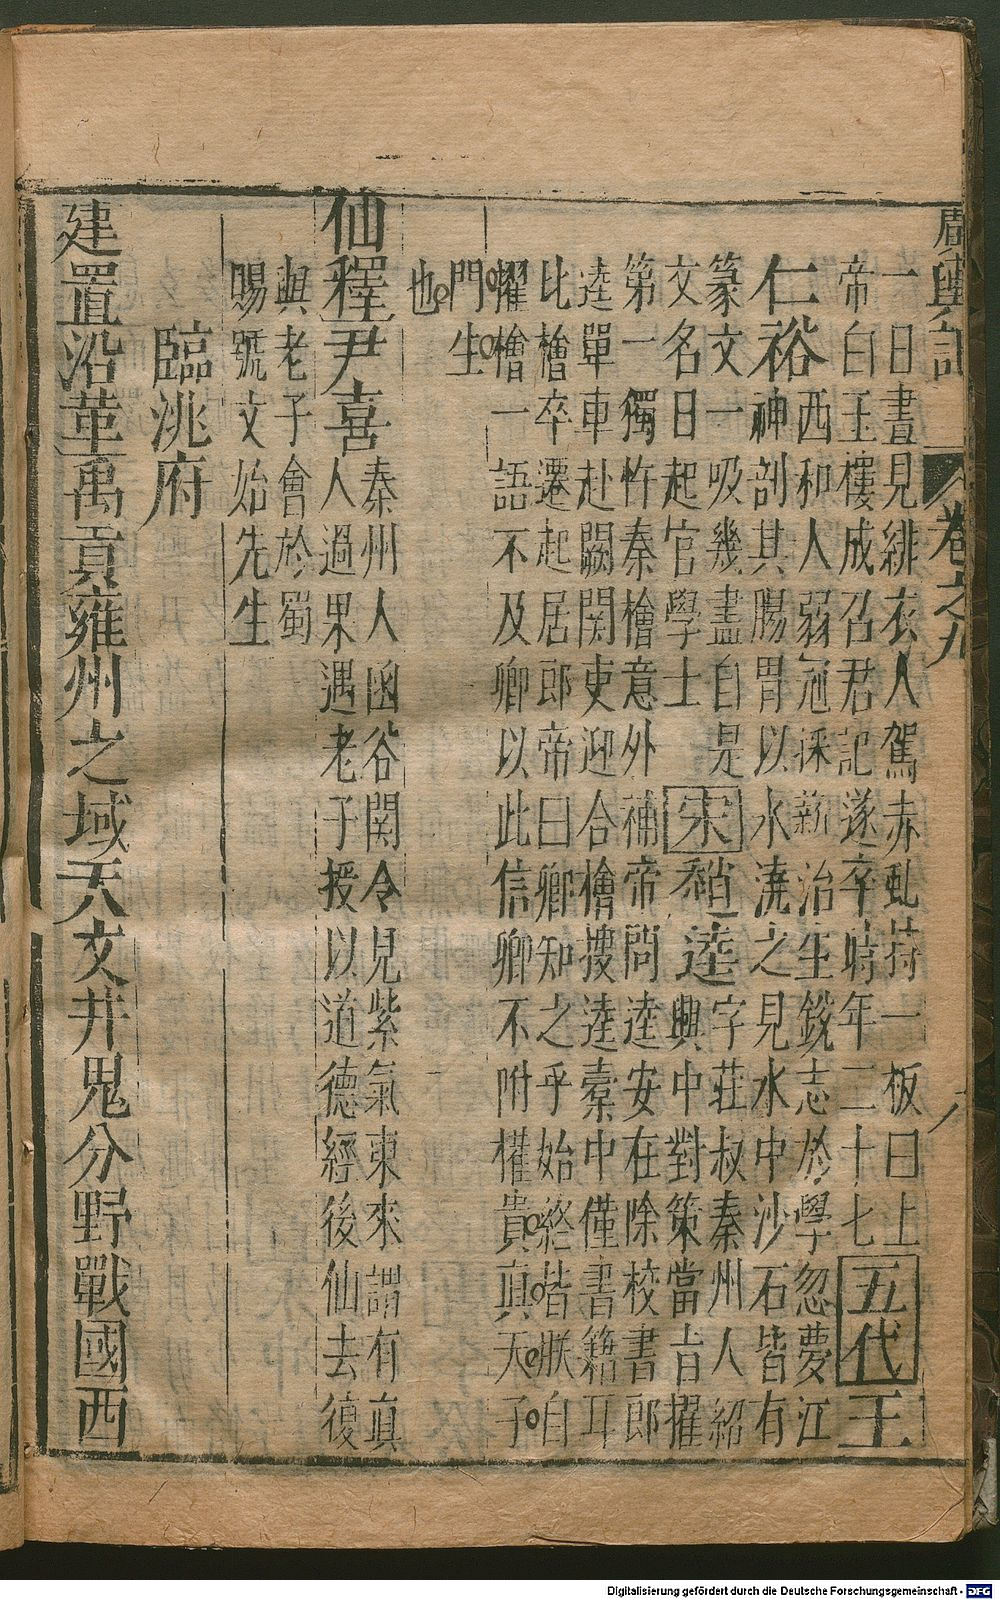 廣輿記 卷之九 八
一日晝見緋衣人駕赤虬持一板曰上
帝白玉樓成召君記遂卒時年二十七 五代 王
仁裕 西和人弱冠採薪治生銳志於學忽夢江
神剖其腸胃以水澆之見水中沙石皆有
篆文一吸幾盡自是
文名日起官學士 宋 趙逵 字莊叔秦州人紹
興中對策當旨擢
第一獨忤秦檜意外補帝問逵安在除校書郎
逵單車赴闕関吏迎合檜搜逵橐中僅書籍耳
比檜卒遷起居郎帝曰卿知之乎始終皆朕自
擢檜一語不及卿以此信卿不附權貴真天子
門生
也
仙釋 尹喜 秦州人函谷関令見紫氣東來謂有真
人過果遇老子授以道德經後仙去復
與老子會於蜀
賜號文始先生
臨洮府
建置沿革禹貢雍州之域天文井鬼分野戰國西
Digitalisierung gefördert durch die Deutsche Forschungsgemeinschaft - DFG